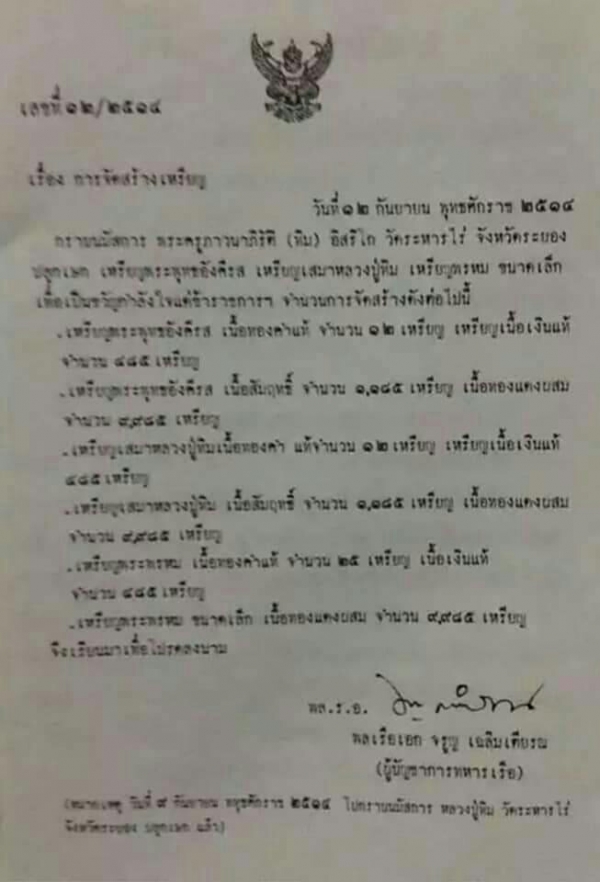 เลขที่ ๑๒/๒๕๑๔
เรื่อง การจัดสร้างเหรียญ
วันที่ ๑๒ กันยายน พุทธศักราช ๒๕๑๔
กราบนมัสการ พระครูภาวนาภิรัติ (ทิม) อิสริโก วัดระหารไร่ จังหวัดระยอง
ปลุกเษก เหรียญพระพุทธอังคีรส เหรียญเสมาหลวงปู่ทิม เหรียญพรหม ขนาดเล็ก
เพื่อเป็นขวัญกำลังใจแด่ข้าราชการฯ จำนวนการจัดสร้างดังต่อไปนี้
.เหรียญพระพุทธอังคีรส เนื้อทองคำแท้ จำนวน ๑๒ เหรียญ เหรียญเนื้อเงินแท้
จำนวน ๔๘๕ เหรียญ
.เหรียญพระพุทธอังคีรส เนื้อสัมฤทธิ์ จำนวน ๑,๑๘๕ เหรียญ เนื้อทองแดงผสม
จำนวน ๙,๙๘๕ เหรียญ
.เหรียญเสมาหลวงปู่ทิมเนื้อทองคำ แท้จำนวน ๑๒ เหรียญ เหรียญเนื้อเงินแท้
๔๘๕ เหรียญ
.เหรียญเสมาหลวงปู่ทิม เนื้อสัมฤทธิ์ จำนวน ๑,๑๘๕ เหรียญ เนื้อทองแดงผสม
จำนวน ๙,๙๘๕ เหรียญ
.เหรียญพระพรหม เนื้อทองคำแท้ จำนวน ๒๕ เหรียญ เนื้อเงินแท้
จำนวน ๔๘๕ เหรียญ
.เหรียญพระพรหม ขนาดเล็ก เนื้อทองแดงผสม จำนวน ๙,๙๘๕ เหรียญ
จึงเรียนมาเพื่อโปรดลงนาม
พล.ร.อ.
พลเรือเอก จรูญ เฉลิมเตียรณ
(ผู้บัญชาการทหารเรือ)
(หมายเหตุ วันที่ ๙ กันยายน พุทธศักราช ๒๕๑๔ ไปกราบนมัสการ หลวงปู่ทิม วัดระหารไร่
จังหวัดระยอง ปลุกเษก แล้ว)